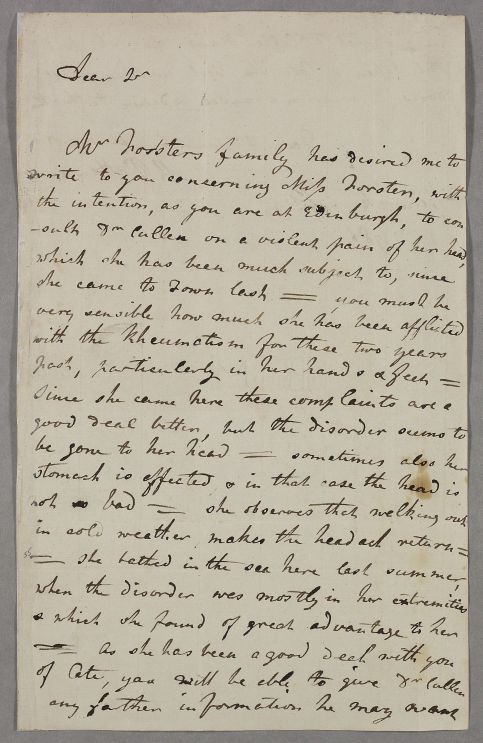 Dear Dr
Mr Forsters family has desired me to
write to you concerning Miss Forster, with
the intention, as you are at Edinburgh, to con
-sult Dr Cullen on a violent pain of her head,
which she has been much subject to, since
she came to Town last = you must be
very sensible how much she has been afflicted
with the Rheumatism for these two years
past, particularly in her hands & feet =
Since she came here these complaints are a
good deal better, but the disorder seems to
be gone to her head = sometimes also her
stomach is affected & in that case the head is
not so bad = she observes that walking out
in cold weather makes the headach return =
= she bathed in the sea here last summer,
when the disorder was mostly in her extremities
& which she found of great advantage to her
= as she has been a good deal with you
of late, you will be able to give Dr Cullen
any farther information he may want